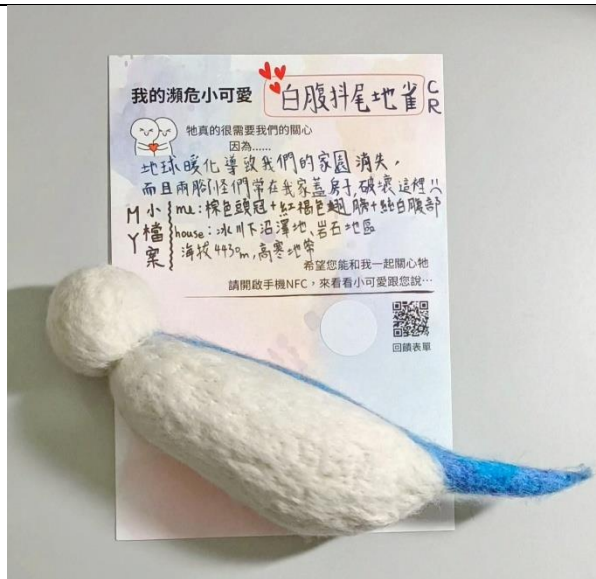 我的瀕危小可愛 白腹抖尾地雀 CR
牠真的很需要我們的關心
因為......
地球暖化導致我們的家園消失，
而且兩腳怪們常在我家蓋房子，破壞這裡!!
MY 小檔案
me：棕色頭冠+紅褐色翅膀+純白腹部
house：冰川下沼澤地、岩石地區
海拔4430m，高寒地帶
希望您能和我一起關心牠
請開啟手機NFC，來看看小可愛跟您說…
回饋表單